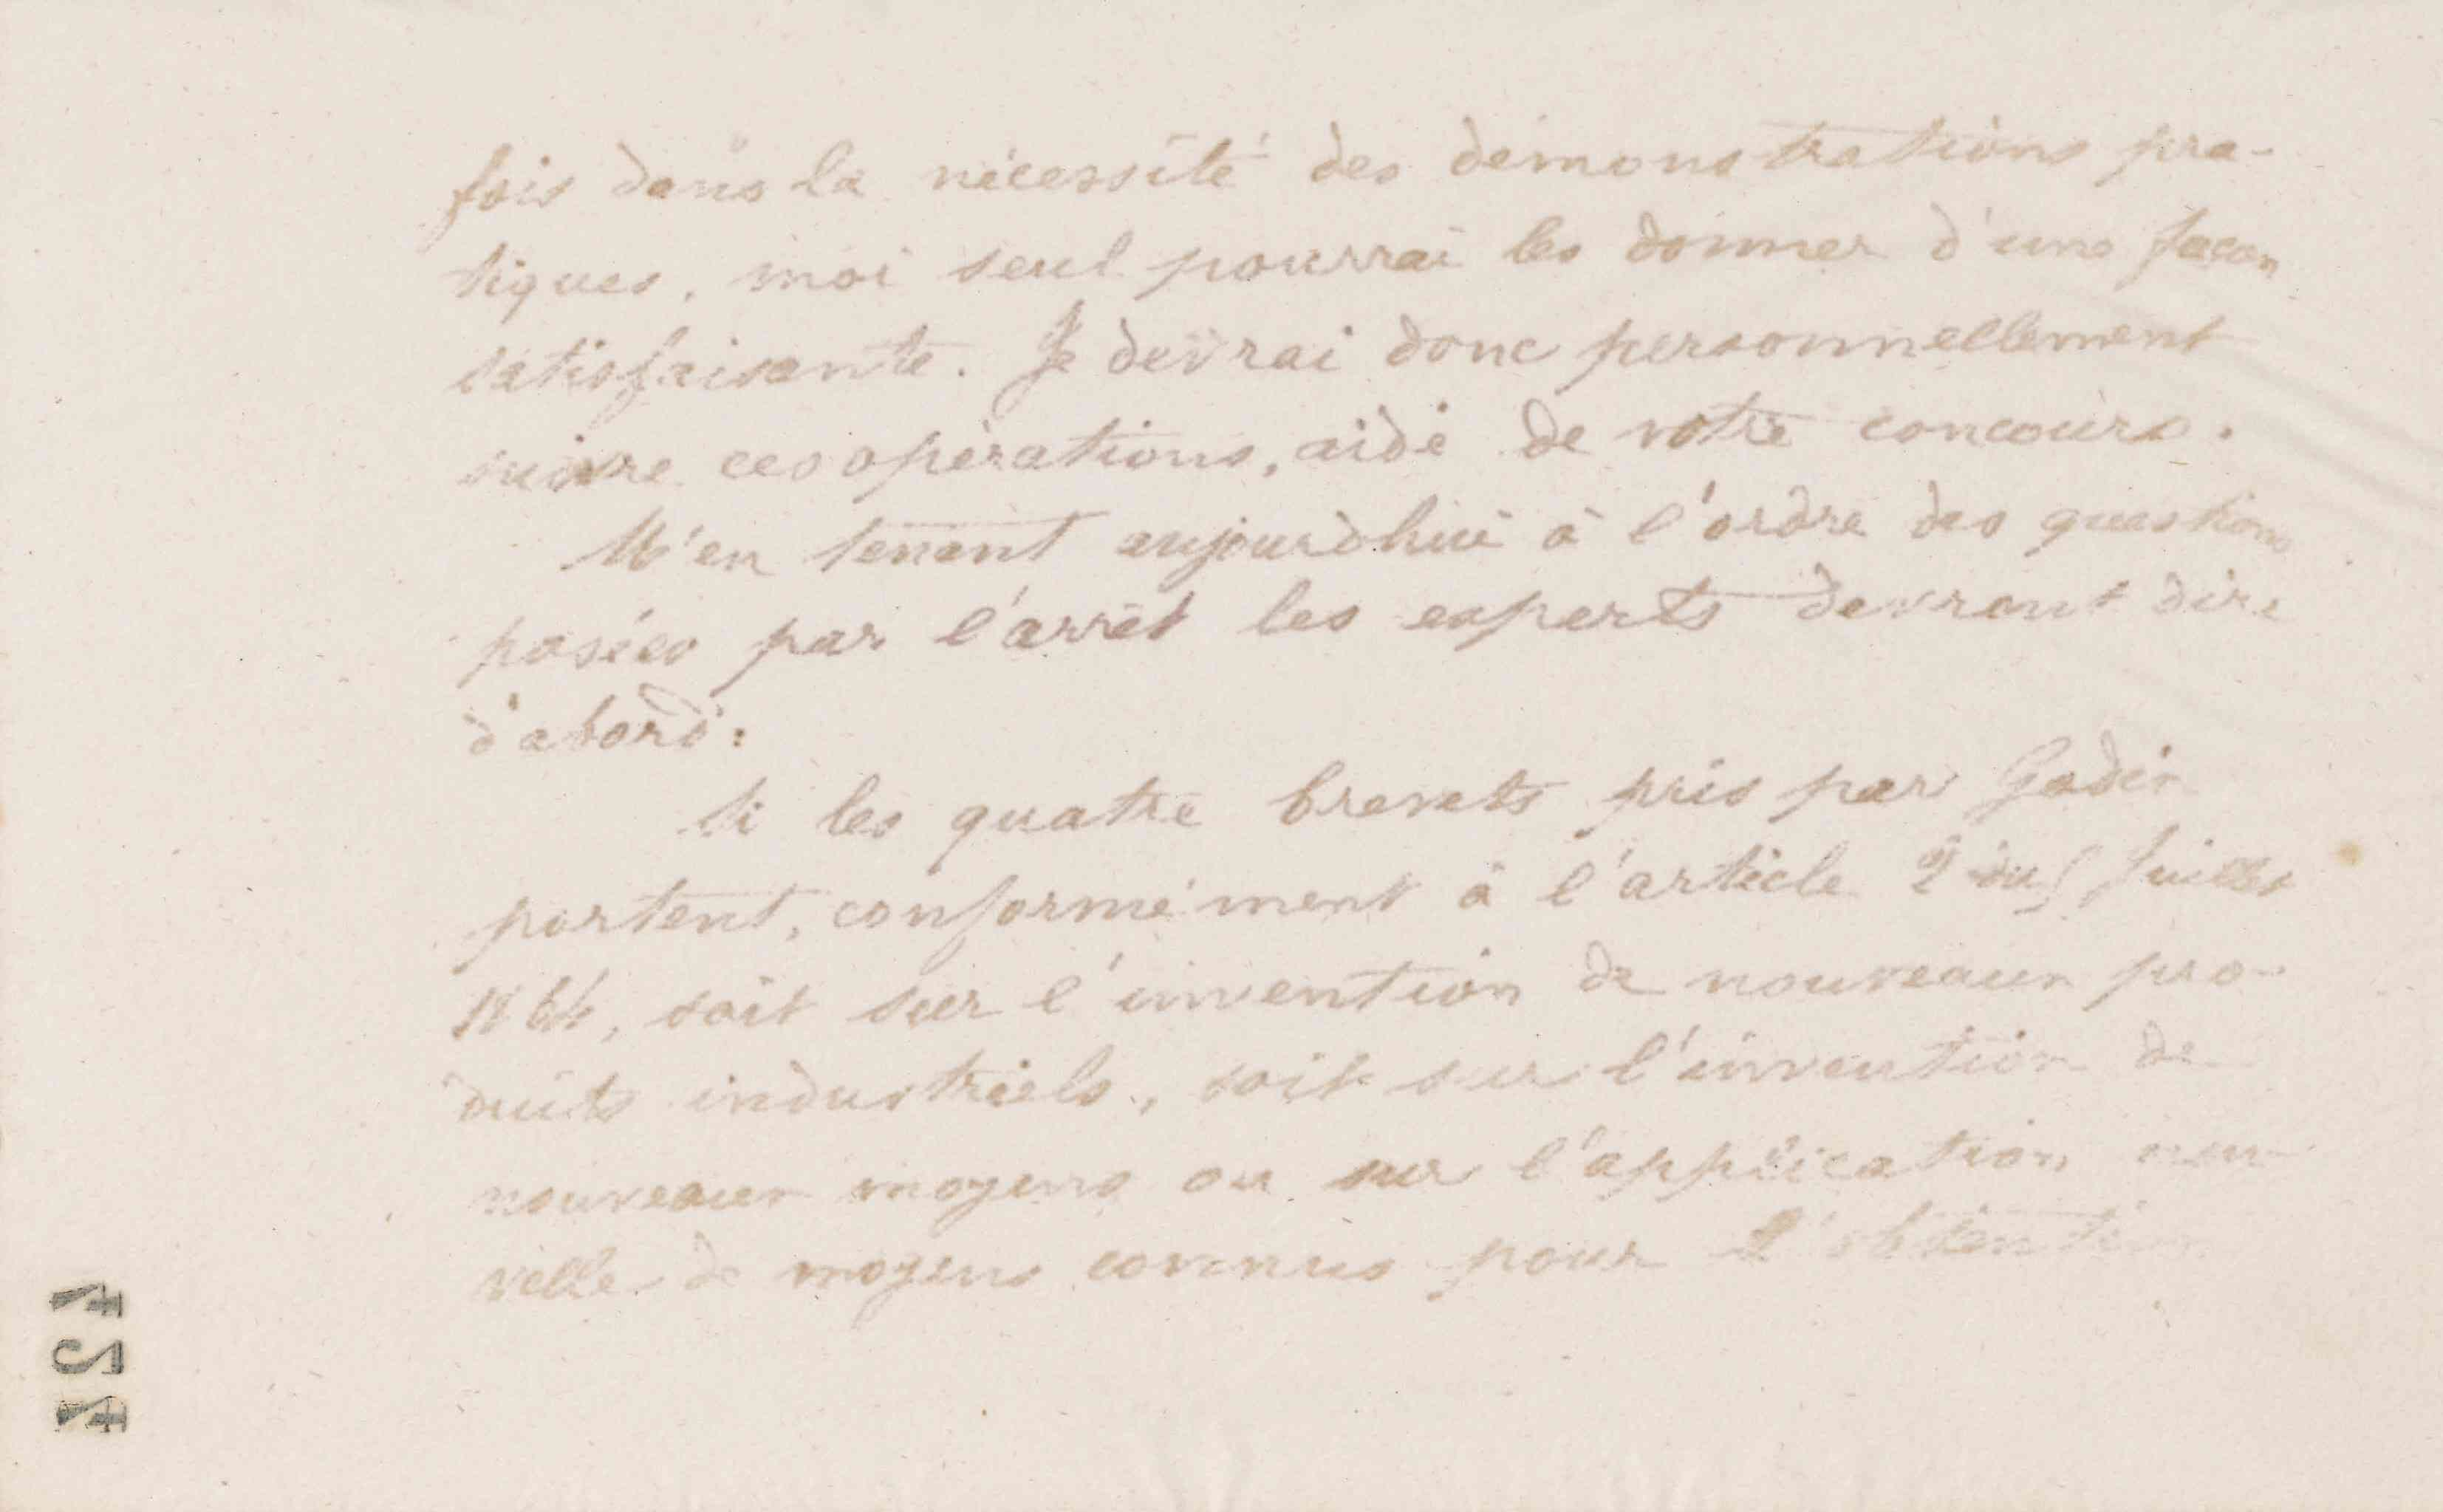 fois dans la nécessité des démonstrations pra-
tiques, moi seul pourrai les donner d'une facon
satisfaisante. Je devrai donc personnellement
suivre ces opérations, aidé de votre concours.
M'en tenant aujourd'hui à l'ordre des questions
posées par l'arrêt les experts devront dire
d'abord:
Si les quatre brevets pris par Godin
portent, conformément à l'article 2 du 5 Juillet
1844, soit sur l'invention de nouveaux pro-
duits industriels, soit sur l'invention de
nouveaux moyens ou sur l'application nou-
velle de moyens connus pour l'obtention